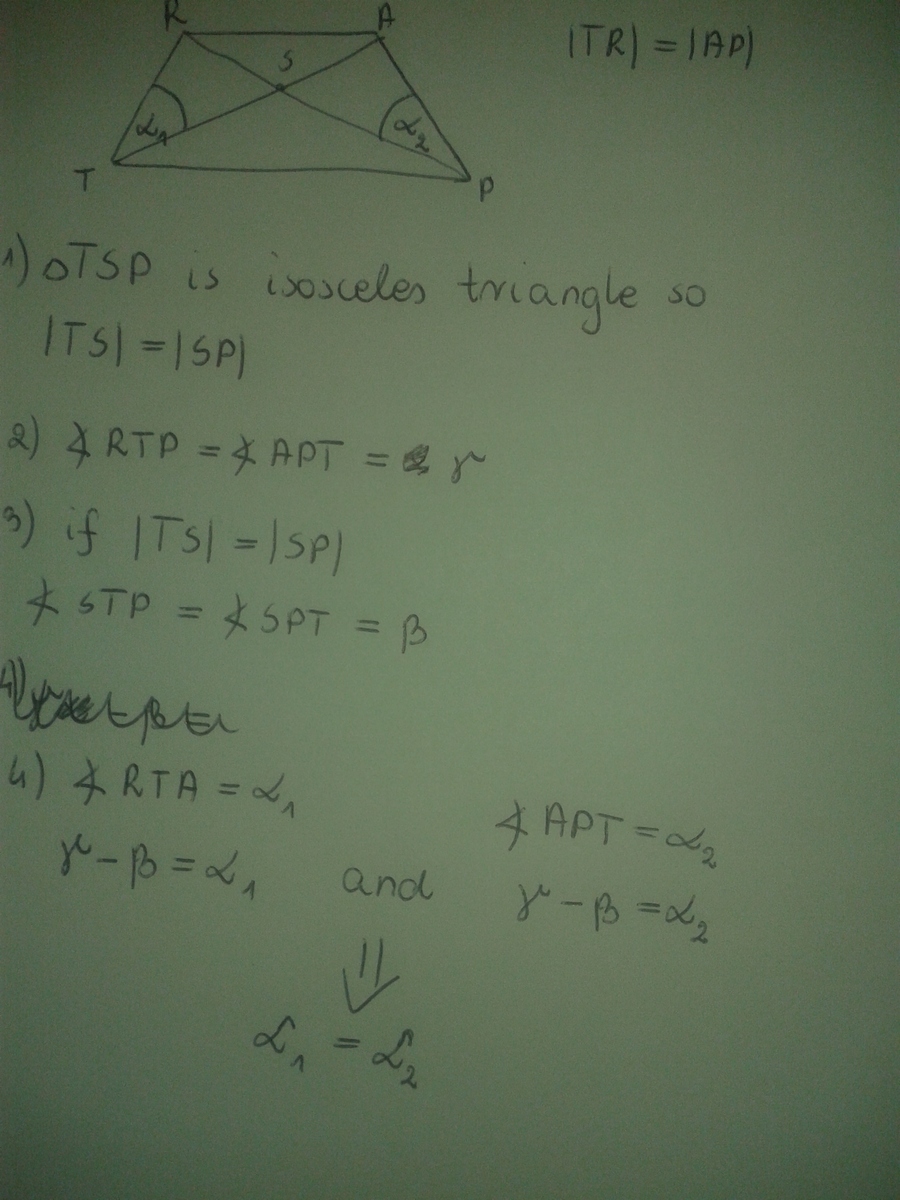 R A
|TR| = |AP|
S
α₁ α₂
T P
1) △TSP is isosceles triangle so
|TS| = |SP|
2) ∢ RTP = ∢ APT = γ
3) if |TS| = |SP|
∢ STP = ∢ SPT = β
4) ∢ RTA = α₁
∢ APT = α₂
γ - β = α₁ and γ - β = α₂
⇓
α₁ = α₂